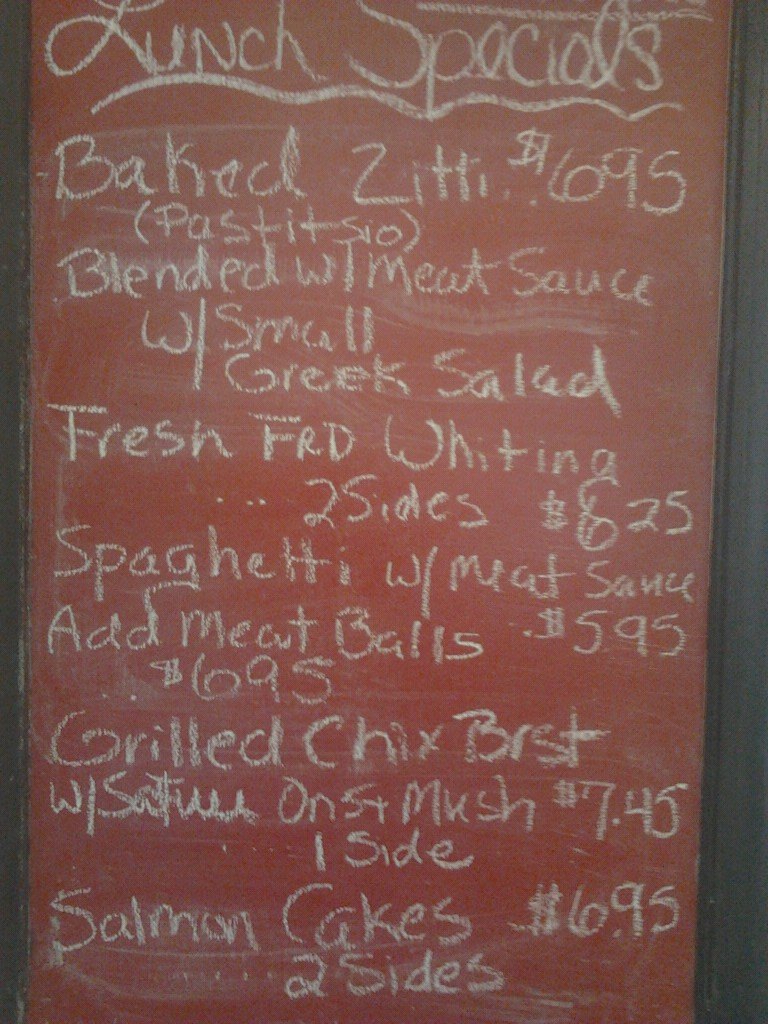 Lunch Specials
Baked Zitti .. $695
(Pastitsio)
Blended w/Meat Sauce
w/Small
Greek Salad
Fresh FRD Whiting
... 2 Sides $625
Spaghetti w/ meat Sauce
Add Meat Balls .$595
.. $695
Grilled Chix Brst
w/ Ons + Mush $7.45
1 Side
Salmon Cakes .$6.95
2 Sides